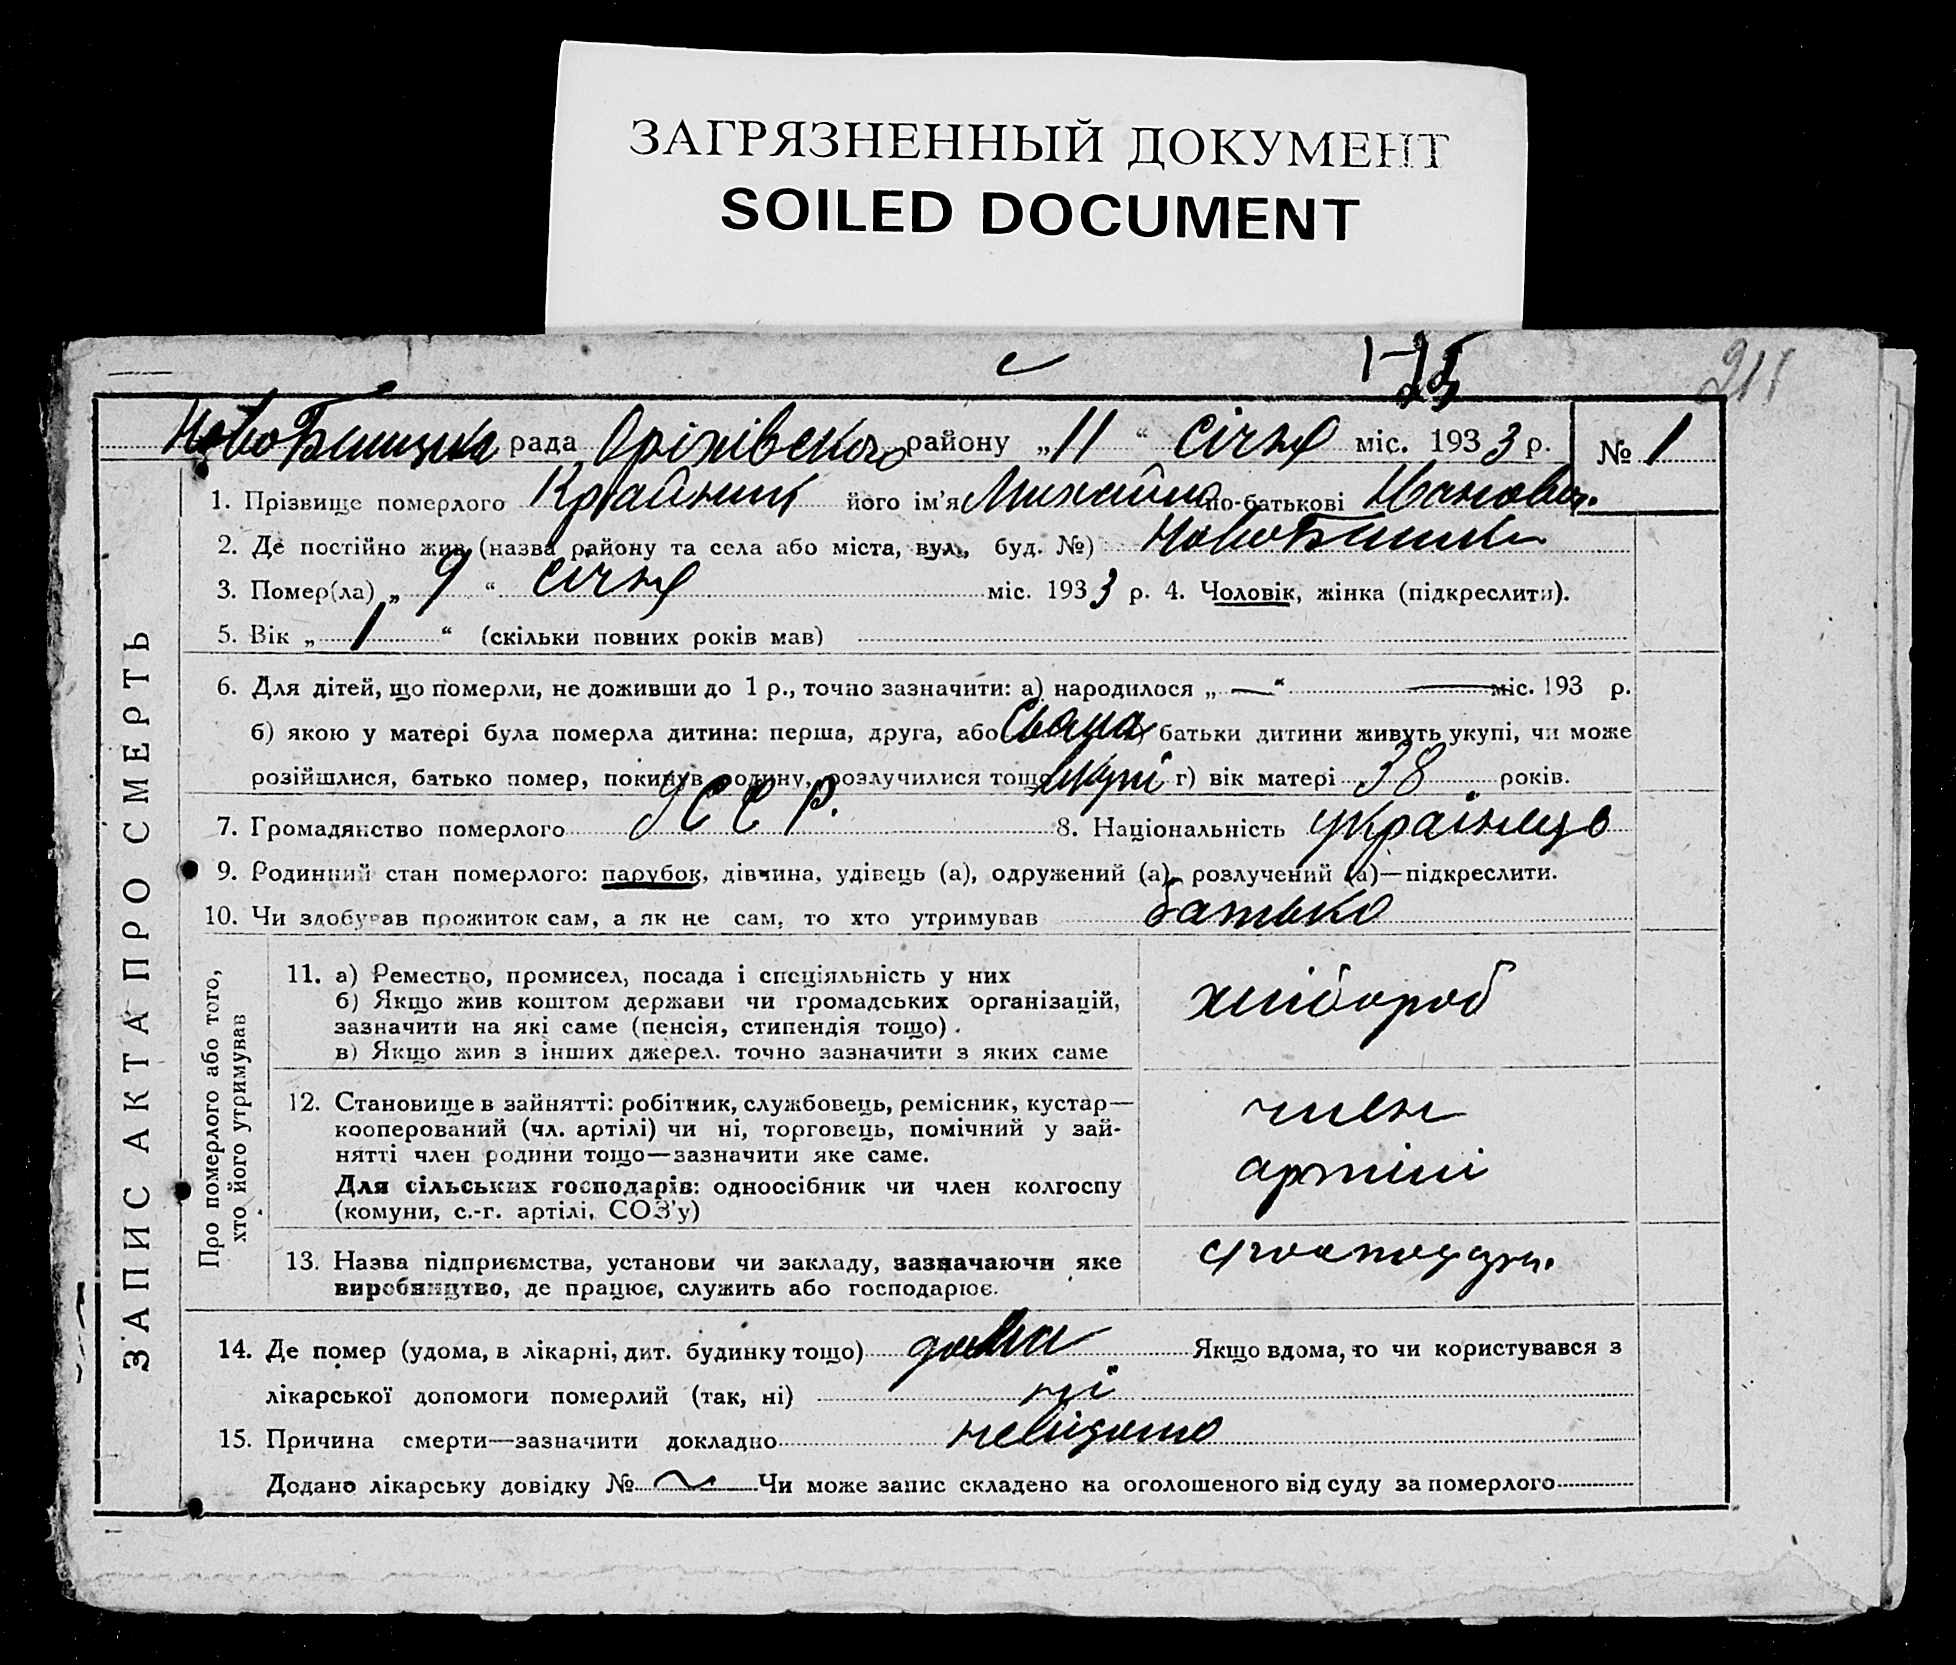 ЗАГРЯЗНЕННЫЙ ДОКУМЕНТ
SOILED DOCUMENT
211
рада Оріхівського району „11“ січня міс. 1933 р. № 1
1. Прізвище померлого Крайний його ім’я Михайло по-батькові Іванович.
2. Де постійно жив (назва району та села або міста, вул., буд. №)
3. Помер(ла) „9“ січня міс. 1933 р. 4. Чоловік, жінка (підкреслити).
5. Вік „1“ (скільки повних років мав)
6. Для дітей, що померли, не доживши до 1 р., точно зазначити: а) народилося „—“ — міс. 193 р.
б) якою у матері була померла дитина: перша, друга, або батьки дитини живуть укупі, чи може
розійшлися, батько помер, покинув родину, розлучилися тощо вкупі г) вік матері 38 років.
7. Громадянство померлого УССР. 8. Національність українець
9. Родинний стан померлого: парубок, дівчина, удівець (а), одружений (а), розлучений (а)—підкреслити.
10. Чи здобував прожиток сам, а як не сам, то хто утримував батько
ЗАПИС АКТА ПРО СМЕРТЬ
Про померлого або того,
хто його утримував
11. а) Ремество, промисел, посада і спеціяльність у них
б) Якщо жив коштом держави чи громадських організацій,
зазначити на які саме (пенсія, стипендія тощо).
в) Якщо жив з інших джерел, точно зазначити з яких саме
хлібороб
12. Становище в зайнятті: робітник, службовець, ремісник, кустар—
кооперований (чл. артілі) чи ні, торговець, помічний у зай-
нятті член родини тощо—зазначити яке саме.
Для сільських господарів: одноосібник чи член колгоспу
(комуни, с.-г. артілі, СОЗ’у)
член
артілі
13. Назва підприємства, установи чи закладу, зазначаючи яке
виробництво, де працює, служить або господарює.
14. Де помер (удома, в лікарні, дит. будинку тощо) дома Якщо вдома, то чи користувався з
лікарської допомоги померлий (так, ні) ні
15. Причина смерти—зазначити докладно невідомо
Додано лікарську довідку № Чи може запис складено на оголошеного від суду за померлого